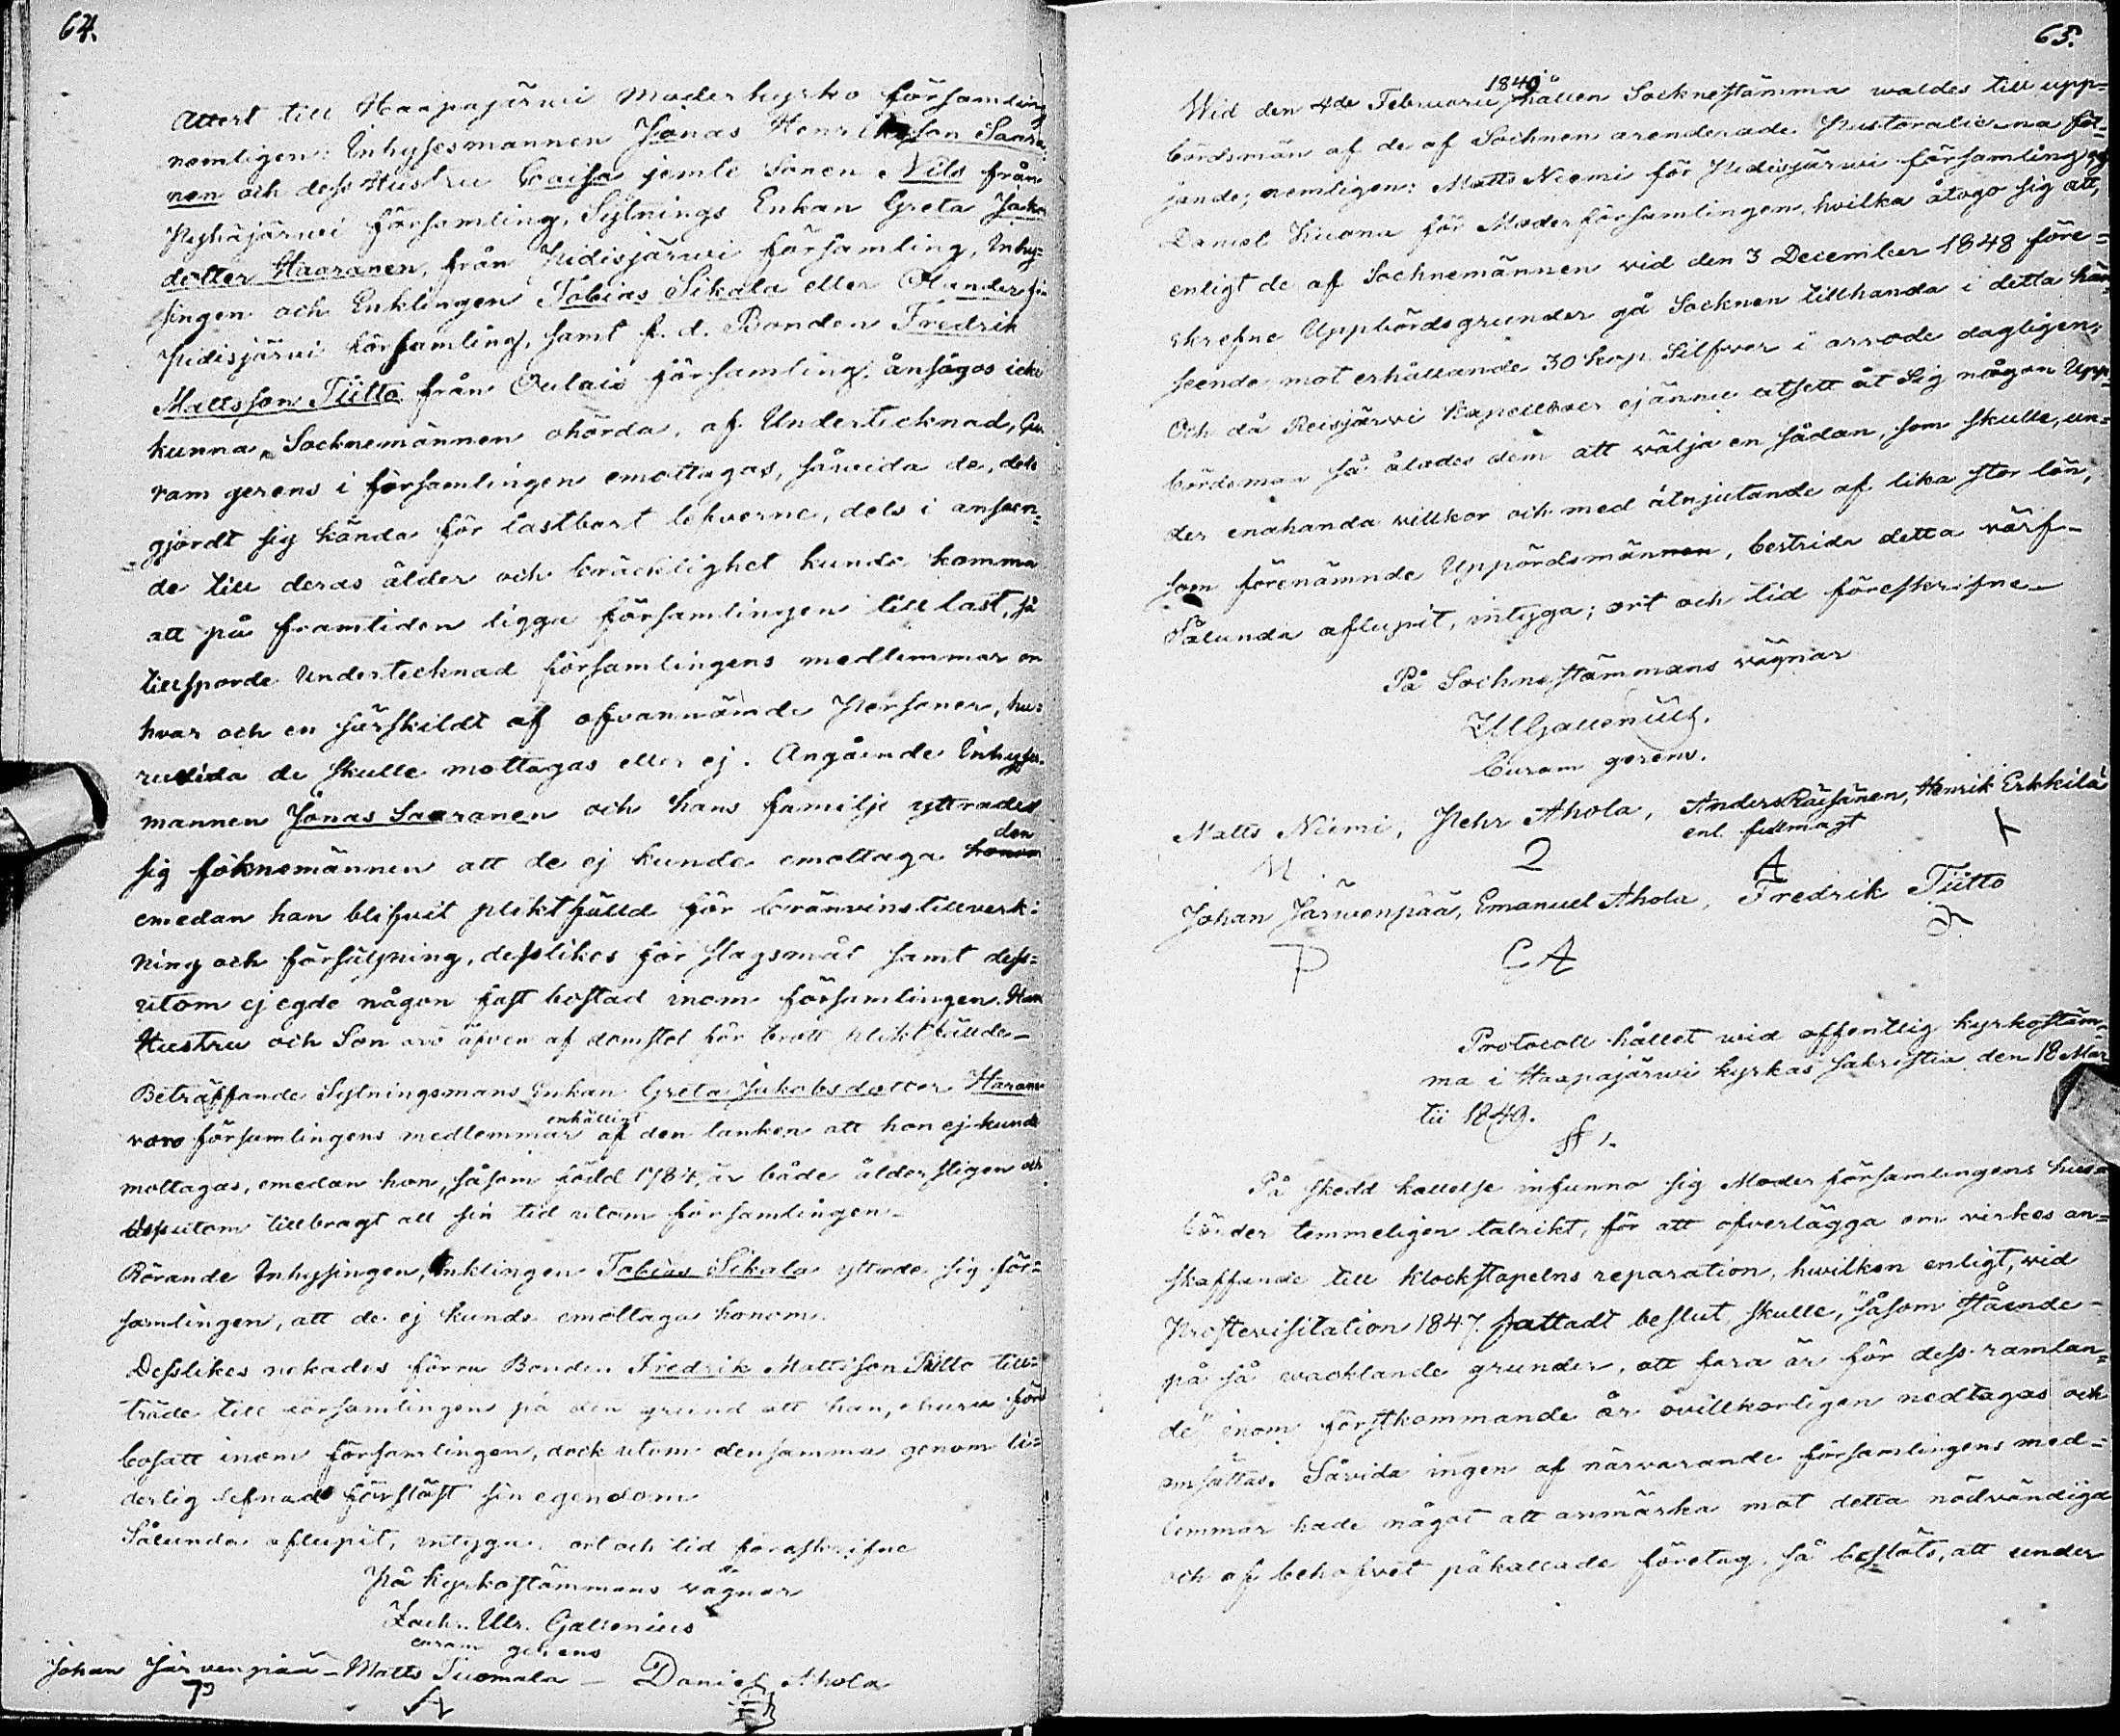 64.
Attest till Haapajärwi Moderkyrko församling
nemligen: Inhysesmannen Jonas Henriksson Saara-
nen och dess Hustru Caisa jemte Sonen Nils från
Pyhäjärwi församling, Sytnings Enkan Greta Jako
dotter Haaranen, från Pidisjärwi församling, Inhy-
singen och Enklingen Tobias Sikala eller Ölander fr
Pidisjärwi församling, samt f. d. Bonden Fredrik
Mattsson Tiitto från Oulais församling, ansågos icke
kunna, Socknemännen ohörda, af Undertecknad, Cu
ram gerens i församlingen emottagas, såvida de, dels
gjordt sig kända för lastbart lefverne, dels i anseen-
de till deras ålder och bräcklighet kunde komma
att på framtiden ligga församlingen till last, så
tillsporde Undertecknad församlingens medlemmar om
hvar och en särskildt af ofvannämde Personer, hu-
ruvida de skulle mottagas eller ej. Angående Inhyses
mannen Jonas Saaranen och hans familje yttrades
den
sig soknemännen att de ej kunde emottaga honom
emedan han blifvit pliktfälld för bränvinstillverk-
ning och försäljning, desslikes för slagsmål samt dess-
utom ej egde någon fast bostad inom församlingen. Han
Hustru och Son äro äfven af domstol för brott pliktfällde_
Beträffande Sytningsmans Enkan Greta Jakobsdotter Harane
enhälligt
voro församlingens medlemmar af den tanken att hon ej kunde
mottagas, emedan hon, såsom född 1784, är både ålderstigen och
dessutom tillbragt all sin tid utom församlingen_
Rörande Inhysingen, Enklingen Tobias Sikala yttrade sig för-
samlingen, att de ej kunde emottaga honom.
Desslikes nekades förra Bonden Fredrik Mattsson Tiitto till-
träde till församlingen på den grund att han, ehuru förr
bosatt inom församlingen, dock utom densamma genom li-
derlig lefnad förslöst sin egendom
Sålunda aflupit, intyga, ort och tid föreskrifne
På Kyrkostämmans vägnar
Zach. Ulr. Gallenius
curam gerens
Johan Järvenpää _ Matts Tuomala _ Daniel Ahola
65.
1849
Wid den 4de Februarii hållen Socknestämma waldes till upp-
bördsmän af de af Socknen arenderade Pastoralierna föl-
jande; nemligen: Matts Niemi för Pidisjärwi församling och
Daniel Kuona för Moderförsamlingen, hvilka åtogo sig att,
enligt de af Socknemännen vid den 3 December 1848 före-
skrefne Uppbördsgrunder gå Socknen tillhanda i detta hän-
seende mot erhållande 30 kop. Silfver i arvode dagligen;
Och då Reisjärwi kapellboer ej ännu utsett åt sig någon Upp-
bördsman så ålades dem att välja en sådan, som skulle, un-
der enahanda villkor och med åtnjutande af lika stor lön,
som förenämnde Uppördsmännen, bestrida detta värf_
Sålunda aflupit, intyga; ort och tid föreskrifne_
På Sochnestämmans vägnar
ZUGallenius.
Curam gerens.
Matts Niemi, Pehr Ahola, Anders Räisänen, Henrik Erkkilä
enl. fullmagt
M 2 A X
Johan Järwenpää, Emanuel Ahola, Fredrik Tiitto
P E A
Protocoll hållet wid offentlig kyrkostäm-
ma i Haapajärwi kyrkas sakristia den 18 Mar
tii 1849.
§ 1.
På skedd kallelse infunno sig Moderförsamlingens hus-
bönder temmeligen talrikt, för att ofverlägga om virkes an-
skaffande till klockstapelns reparation, hwilken enligt, vid
Prostevisitation 1847. fattadt beslut, skulle, "såsom stående
på så wacklande grunder, att fara är för dess ramlan-
de" inom förstkommande år ovillkorligen nedtagas och
omsättas. Såvida ingen af närvarande församlingens med-
lemmar hade något att anmärka mot detta nödvändiga
och af behofvet påkallade företag, så beslöts, att under